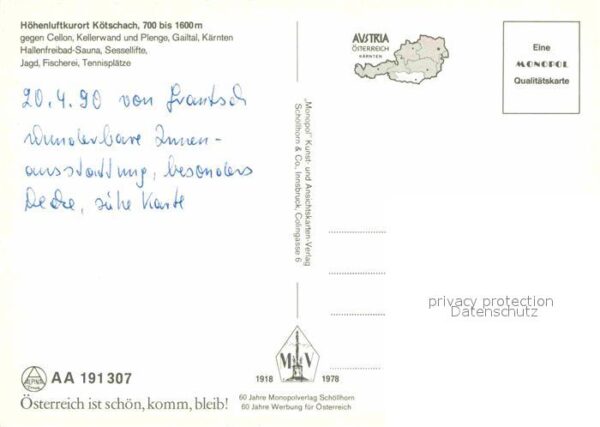 Höhenluftkurort Kötschach, 700 bis 1600m
gegen Cellon, Kellerwand und Plenge, Gailtal, Kärnten
Hallenfreibad-Sauna, Sessellifte,
Jagd, Fischerei, Tennisplätze
20.4.90 von
wunderbare Innen-
ausstattung, besonders
Decke, siehe Karte
AUSTRIA
ÖSTERREICH
KÄRNTEN
Eine
MONOPOL
Qualitätskarte
„Monopol" Kunst- und Ansichtskarten-Verlag
Schöllhorn & Co., Innsbruck, Colingasse 6
privacy protection
Datenschutz
M V
1918 1978
60 Jahre Monopolverlag Schöllhorn
60 Jahre Werbung für Österreich
ALPINA
AA 191307
Österreich ist schön, komm, bleib!